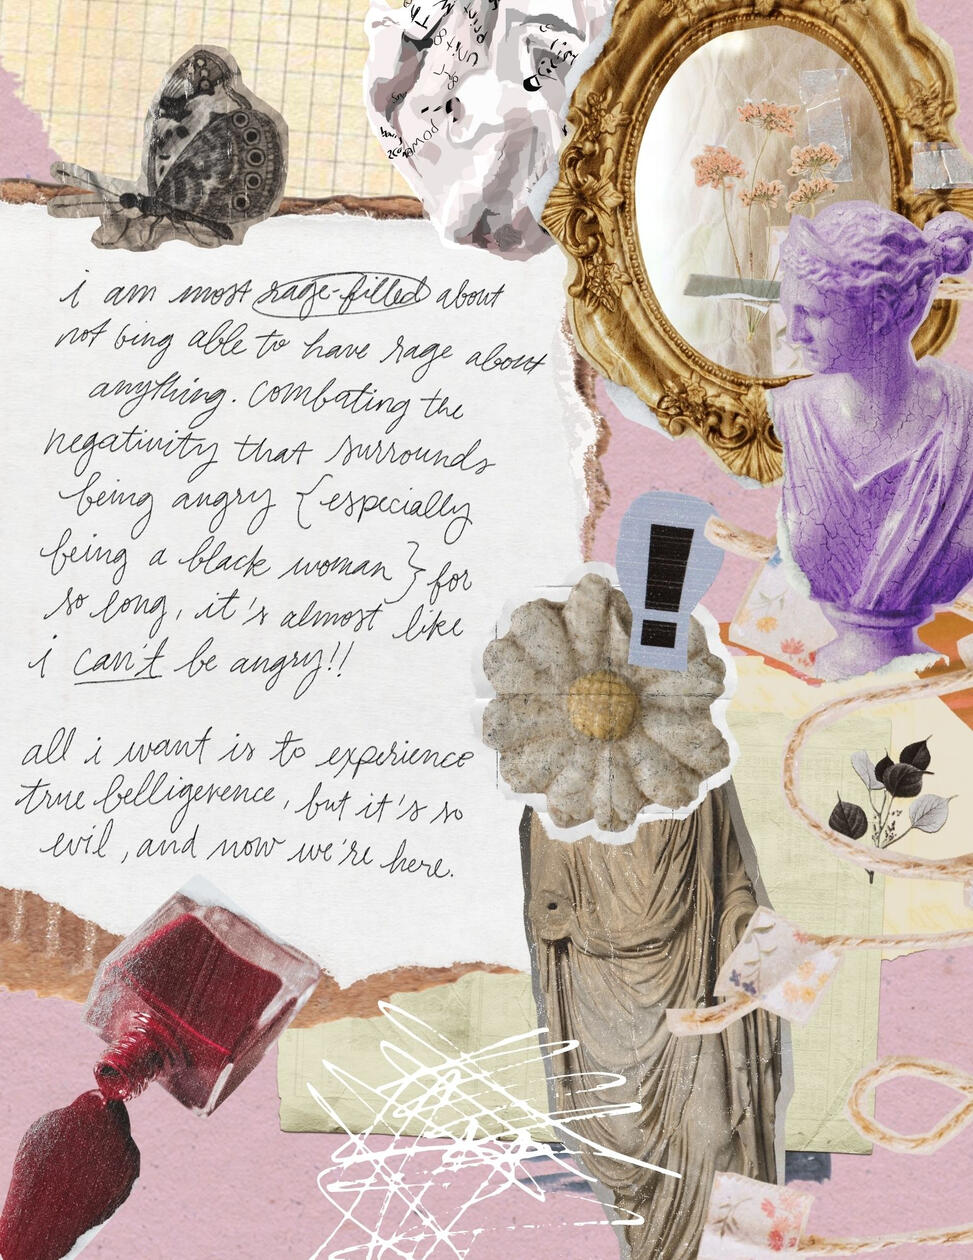 i am most rage-filled about
not being able to have rage about
anything. combating the
negativity that surrounds
being angry {especially
being a black woman} for
so long, it's almost like
i can't be angry!!
all i want is to experience
true belligerence, but it's so
evil, and now we're here.
!